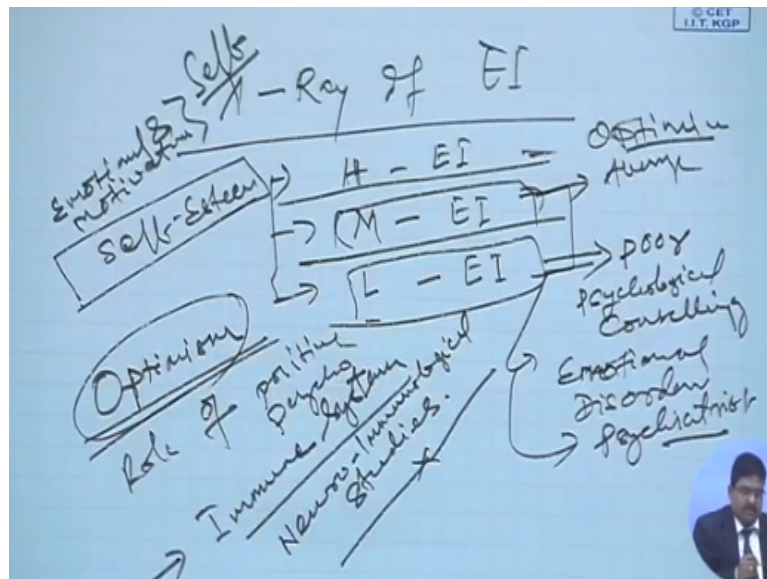 © CET
I.I.T. KGP
Self
X-Ray of EI
Emotional &
motivation
Self-Esteem
H - EI -
M - EI
L - EI
Optimum
Average
Poor
Psychological
Counselling
Emotional
Disorder
Psychiatrist
Optimism
Role of positive
Psycho
Immune System
Neuro-Immunological
Studies.